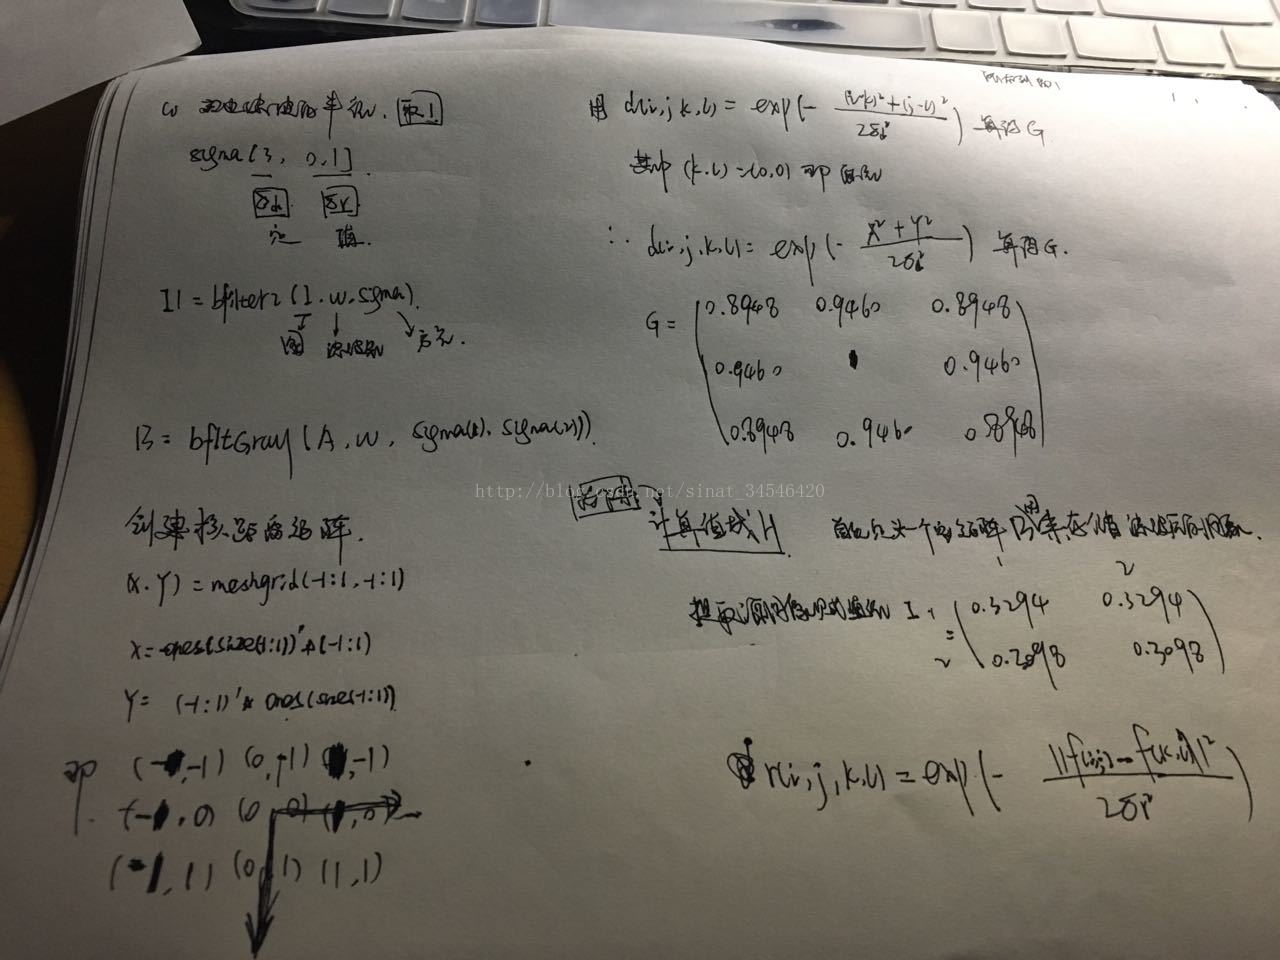 w 双边滤波器半径. 取1
sigma[3, 0.1]
δd δr
定 值.
I1 = bfilter2(I, w, sigma).
图 滤波半径 方差.
B = bfltGray(A, w, sigma(1), sigma(2)).
创建核距离矩阵.
(X, Y) = meshgrid(-1:1, -1:1)
X = ones(size(-1:1))' * (-1:1)
Y = (-1:1)' * ones(size(-1:1))
即 (-1,-1) (0,-1) (1,-1)
(-1,0) (0,0) (1,0)
(-1,1) (0,1) (1,1)
用 d(i,j,k,l) = exp(- (i-k)²+(j-l)² / 2δd²) 算得G
其中 (k,l)=(0,0) 即
∴ d(i,j,k,l) = exp(- X²+Y² / 2δd²) 算得G.
G = (0.8948 0.9460 0.8948
0.9460 1 0.9460
0.8948 0.9460 0.8948)
http://blog.csdn.net/sinat_34546420
计算值域H
1 2
1 (0.3294 0.3294
2 0.3098 0.3098)
r(i,j,k,l) = exp(- ||f(i,j)-f(k,l)||² / 2δr²)